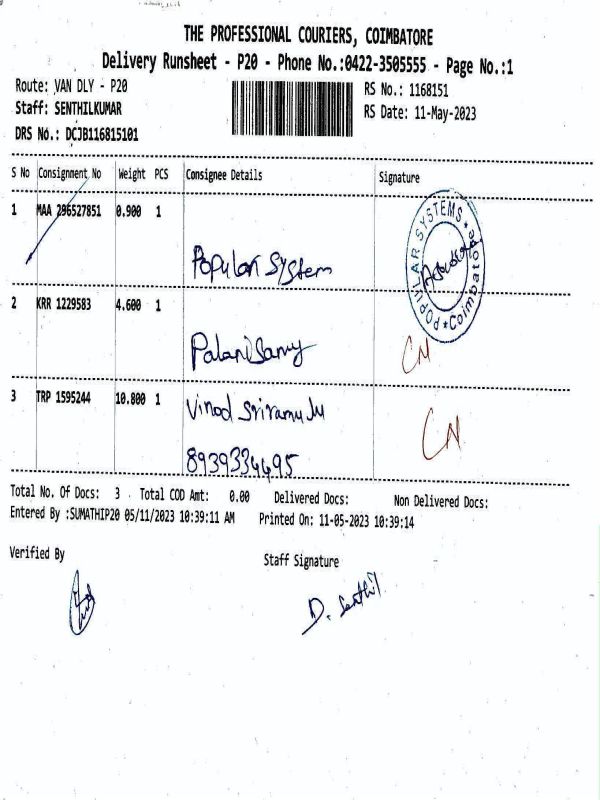 THE PROFESSIONAL COURIERS, COIMBATORE
Delivery Runsheet - P20 - Phone No.:0422-3505555 - Page No.:1
Route: VAN DLY - P20
RS No.: 1168151
Staff: SENTHILKUMAR
RS Date: 11-May-2023
DRS No.: DCJB116815101
S No Consignment No Weight PCS Consignee Details Signature
1 MAA 296527851 0.900 1
Popular System
POPULAR SYSTEMS
* Coimbatore *
2 KRR 1229583 4.600 1
Palanisamy
CN
3 TRP 1595244 10.800 1
Vinod Sriramulu
CN
8939334495
Total No. Of Docs: 3 Total COD Amt: 0.00 Delivered Docs: Non Delivered Docs:
Entered By :SUMATHIP20 05/11/2023 10:39:11 AM Printed On: 11-05-2023 10:39:14
Verified By
Staff Signature
D. Senthil